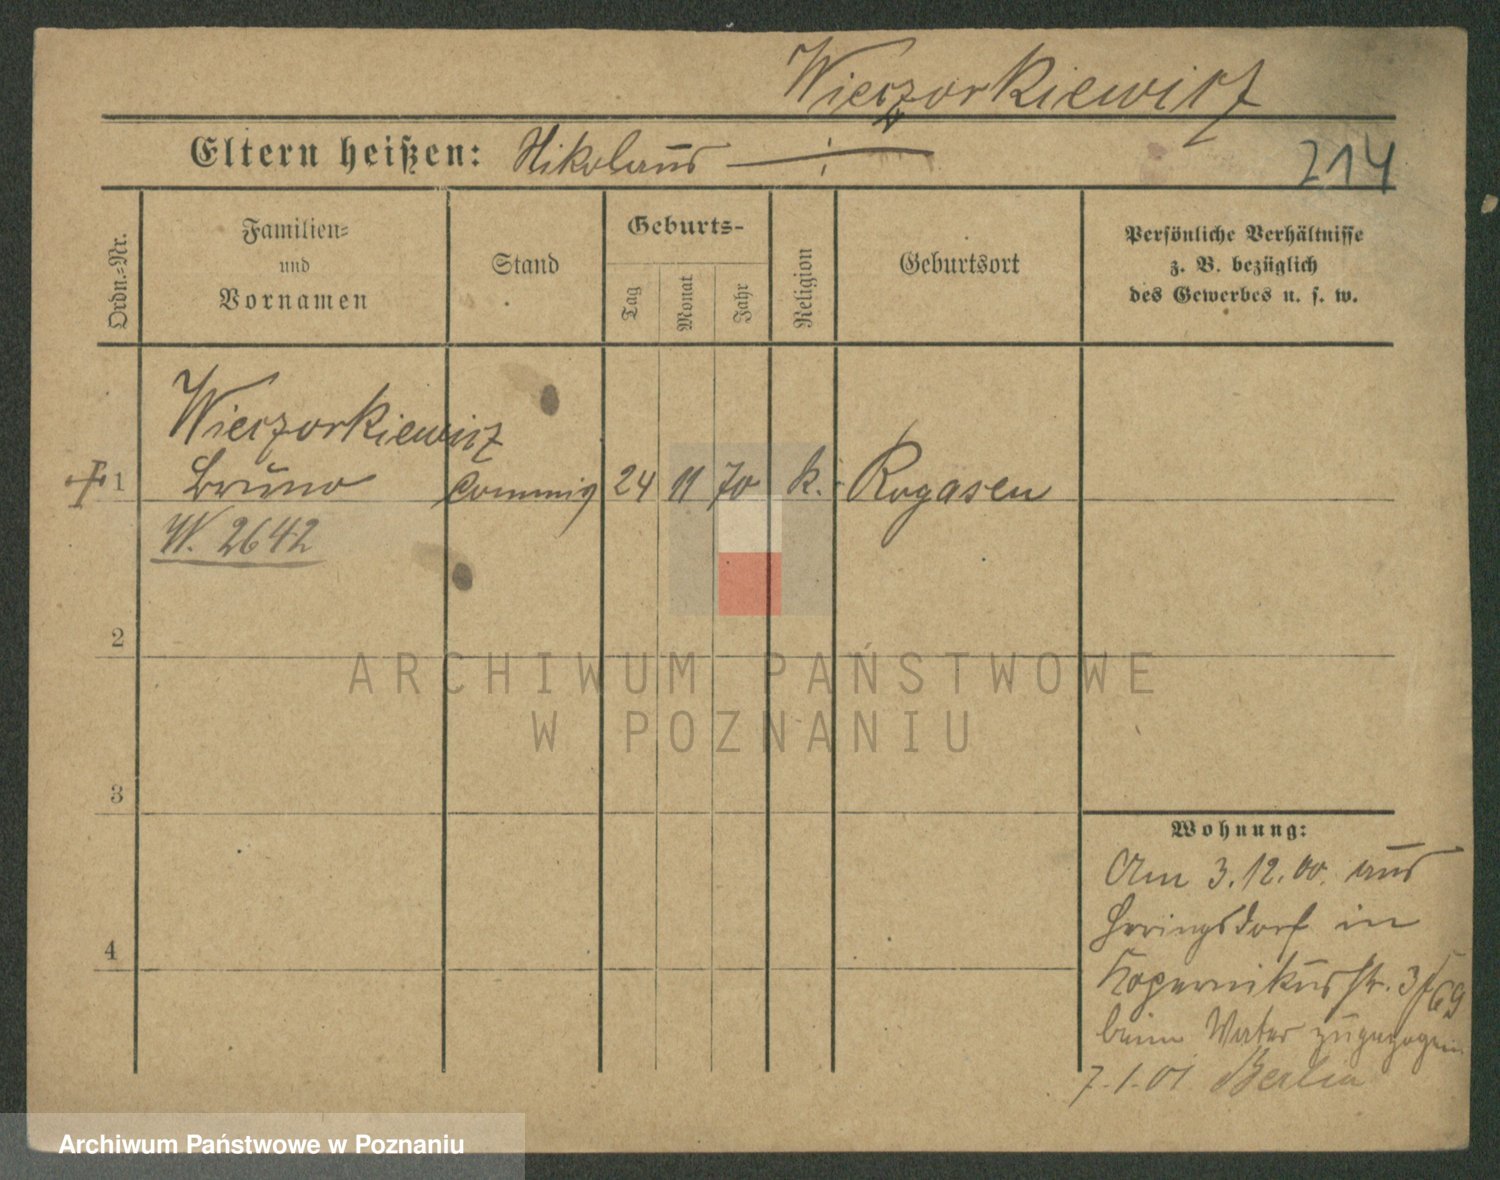 Wieczorkiewicz
Eltern heißen: Nikolaus
214
Ordn.-Nr.
Familien-
und
Vornamen
Stand
Geburts-
Tag
Monat
Jahr
Religion
Geburtsort
Persönliche Verhältnisse
z. B. bezüglich
des Gewerbes u. s. w.
Wieczorkiewicz
1 Bruno Commis 24 11 70 k. Rogasen
W. 2642
2
ARCHIWUM PAŃSTWOWE
W POZNANIU
3
4
Wohnung:
Am 3.12.00. aus
Heringsdorf in
Kopernikusstr. 3/69
beim Vater zugezogen
7.1.01 Berlin
Archiwum Państwowe w Poznaniu